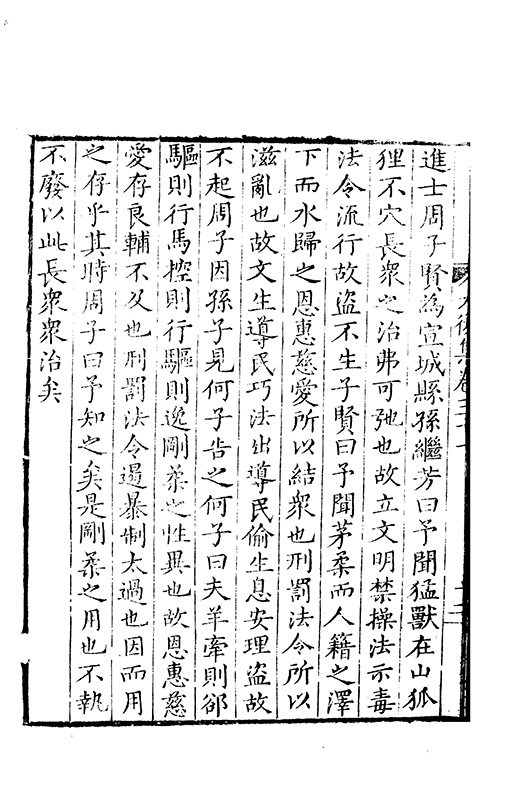 進士周子賢為宣城縣孫繼芳曰予聞猛獸在山狐
狸不穴長衆之治弗可弛也故立文明禁操法示毒
法令流行故盜不生子賢曰予聞茅柔而人籍之澤
下而水歸之恩惠慈愛所以結衆也刑罰法令所以
滋亂也故文生導民巧法出導民偷生息安理盜故
不起周子因孫子見何子告之何子曰夫羊牽則郤
驅則行馬控則行驅則逸剛柔之性異也故恩惠慈
愛存良輔不及也刑罰法令遏暴制太過也因而用
之存乎其時周子曰予知之矣是剛柔之用也不執
不廢以此長衆衆治矣